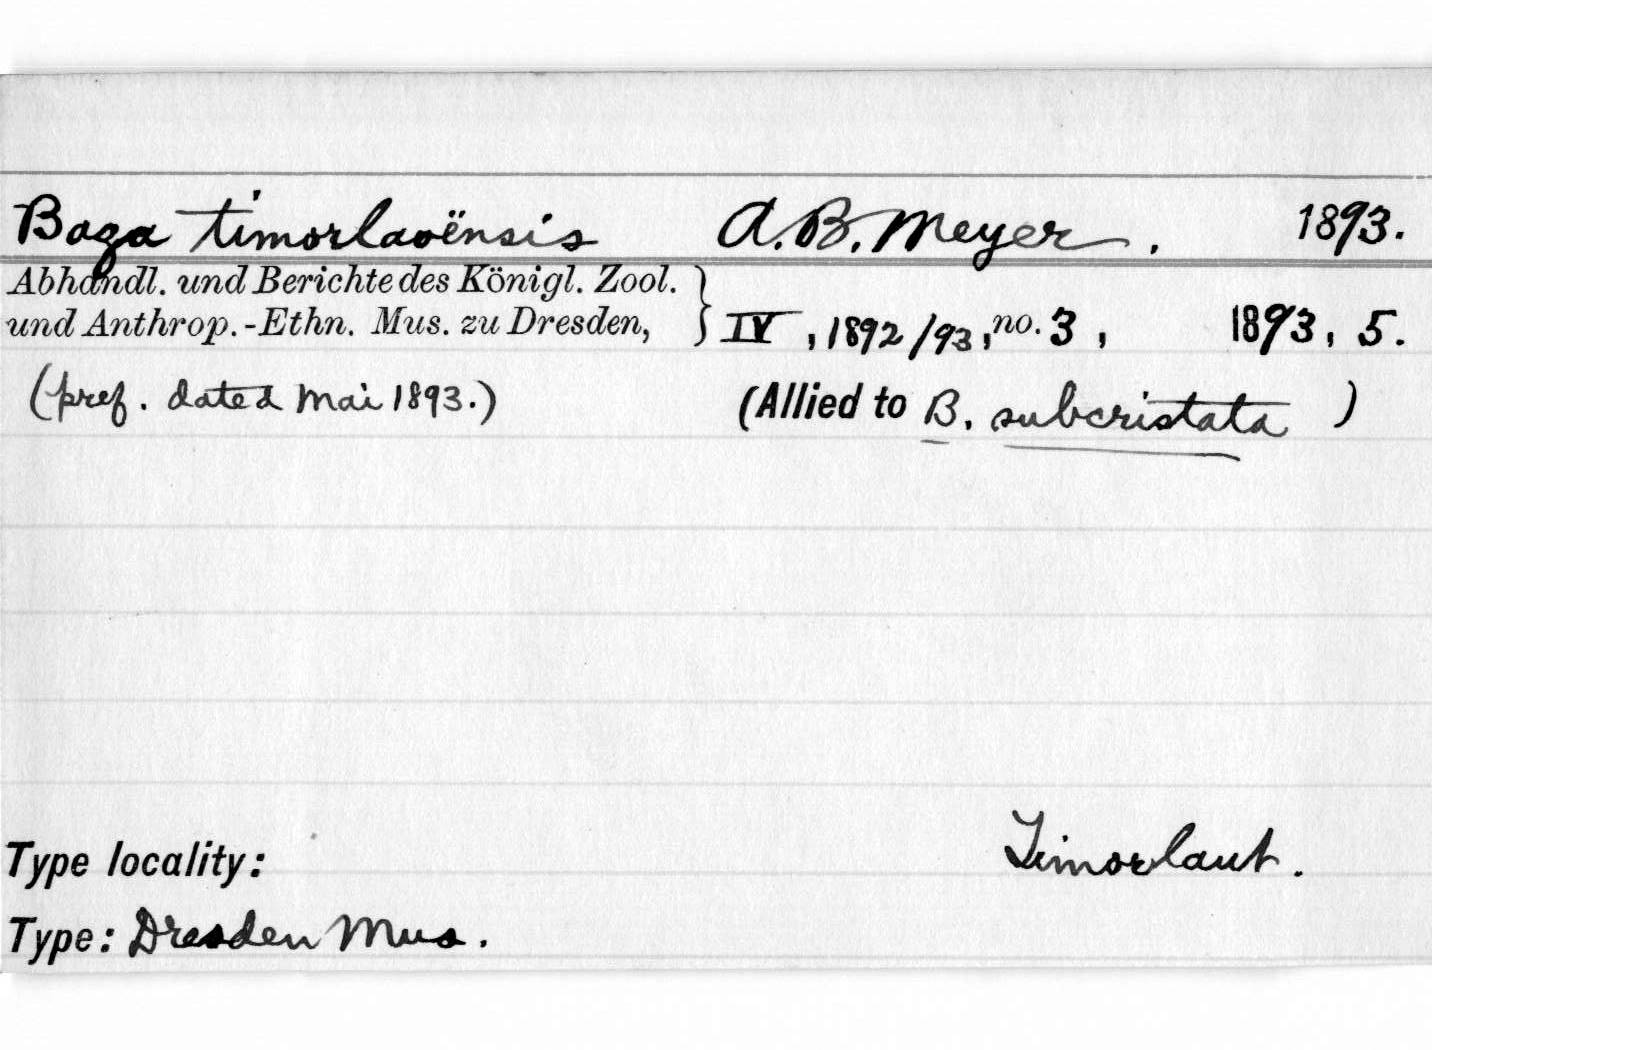 Baza timorlaoënsis A.B. Meyer. 1893.
Abhandl. und Berichte des Königl. Zool.
und Anthrop.-Ethn. Mus. zu Dresden, } IV, 1892/93, no. 3, 1893, 5.
(pref. dated Mai 1893.) (Allied to B. subcristata)
Type locality: Timorlaut.
Type: Dresden Mus.